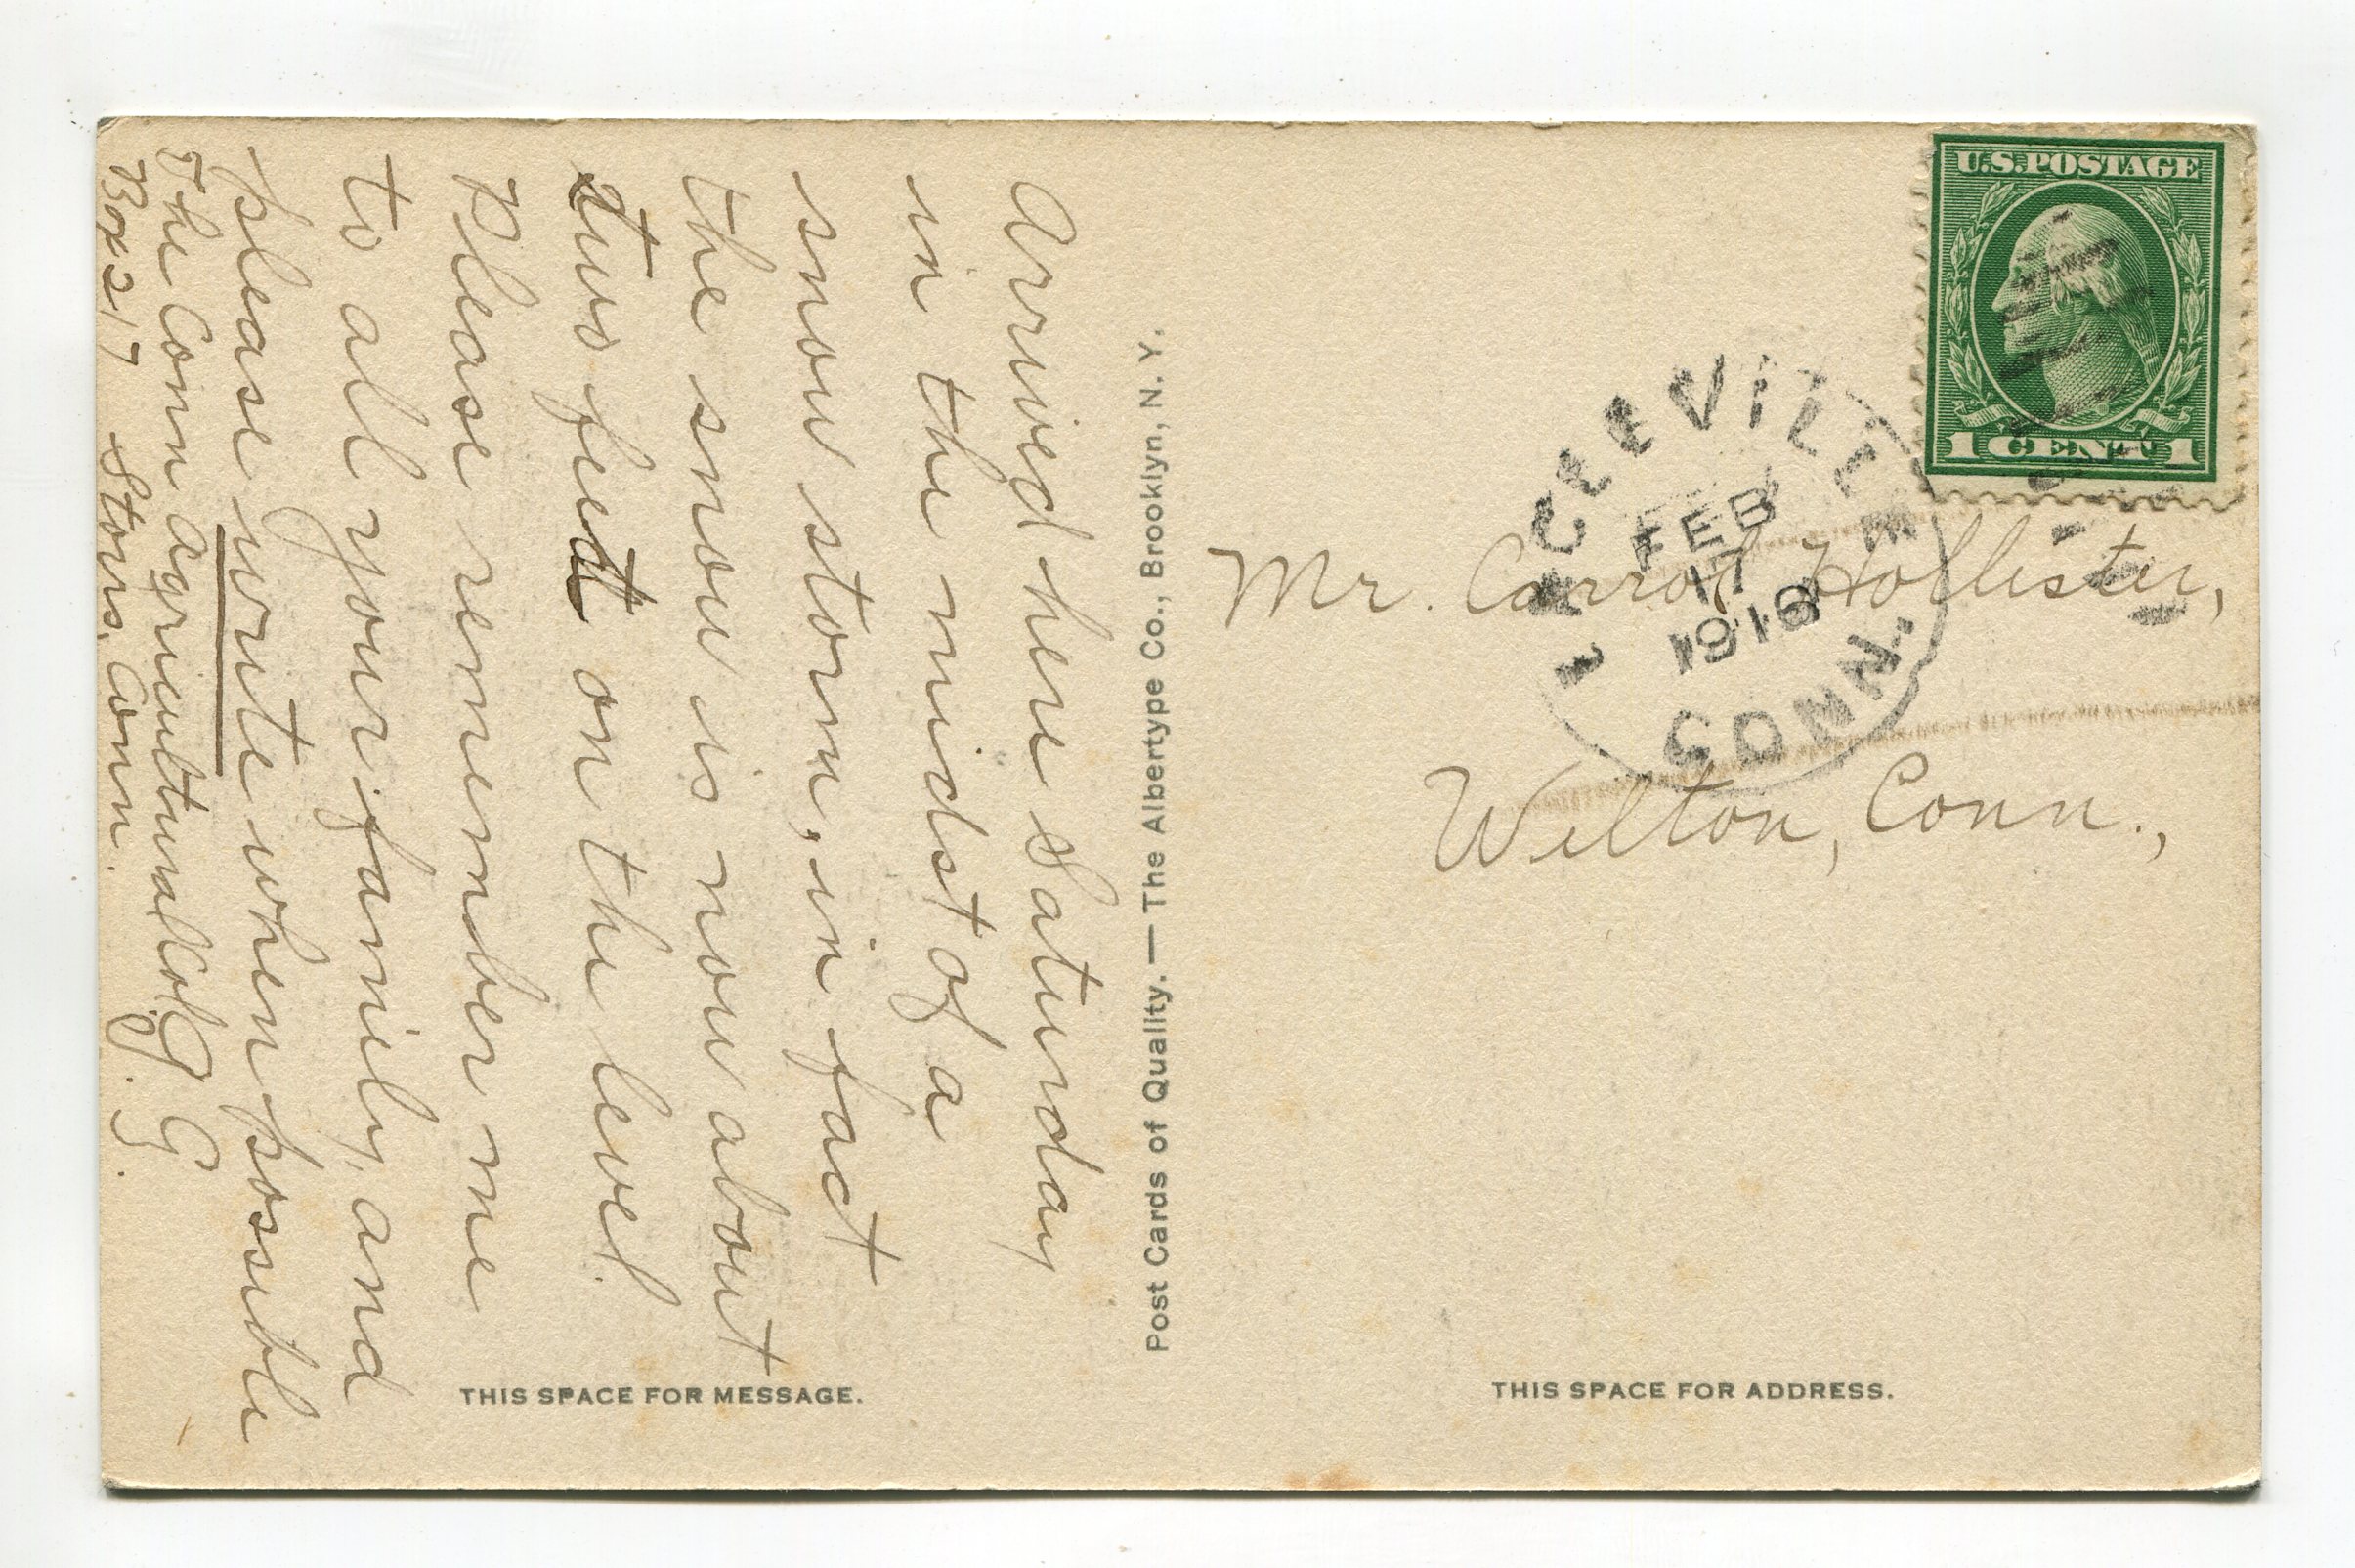 Arrived here Saturday
in the midst of a
snow storm, in fact
the snow is now about
two feet on the level.
Please remember me
to all your family, and
please write when possible
The Conn Agricultural Col. G. G.
Box 217 Storrs, Conn.
Post Cards of Quality. — The Albertype Co., Brooklyn, N. Y.
THIS SPACE FOR MESSAGE.
U.S. POSTAGE
1 CENT 1
EAGLEVILLE
FEB
17
1916
CONN.
Mr. Carrol Hollister,
Wilton, Conn.,
THIS SPACE FOR ADDRESS.